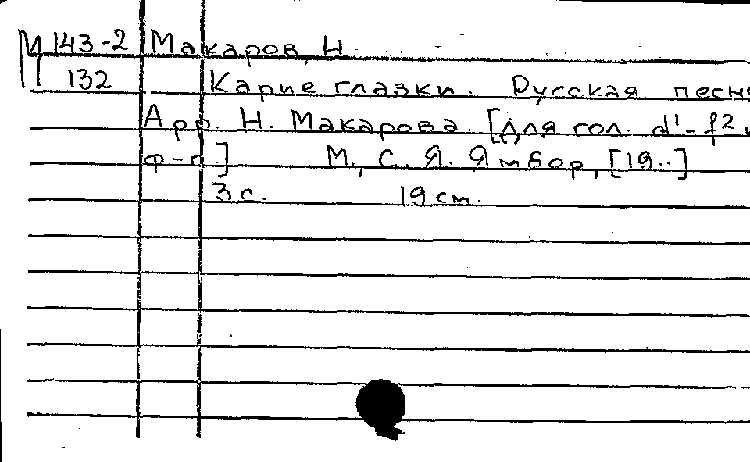 М 143-2 Макаров, Н.
132 Карие глазки. Русская песня
Арр. Н. Макарова. [Для гол. d¹-f² и
ф-п.] М., С. Я. Ямбор, [19..]
3 с. 19 см.